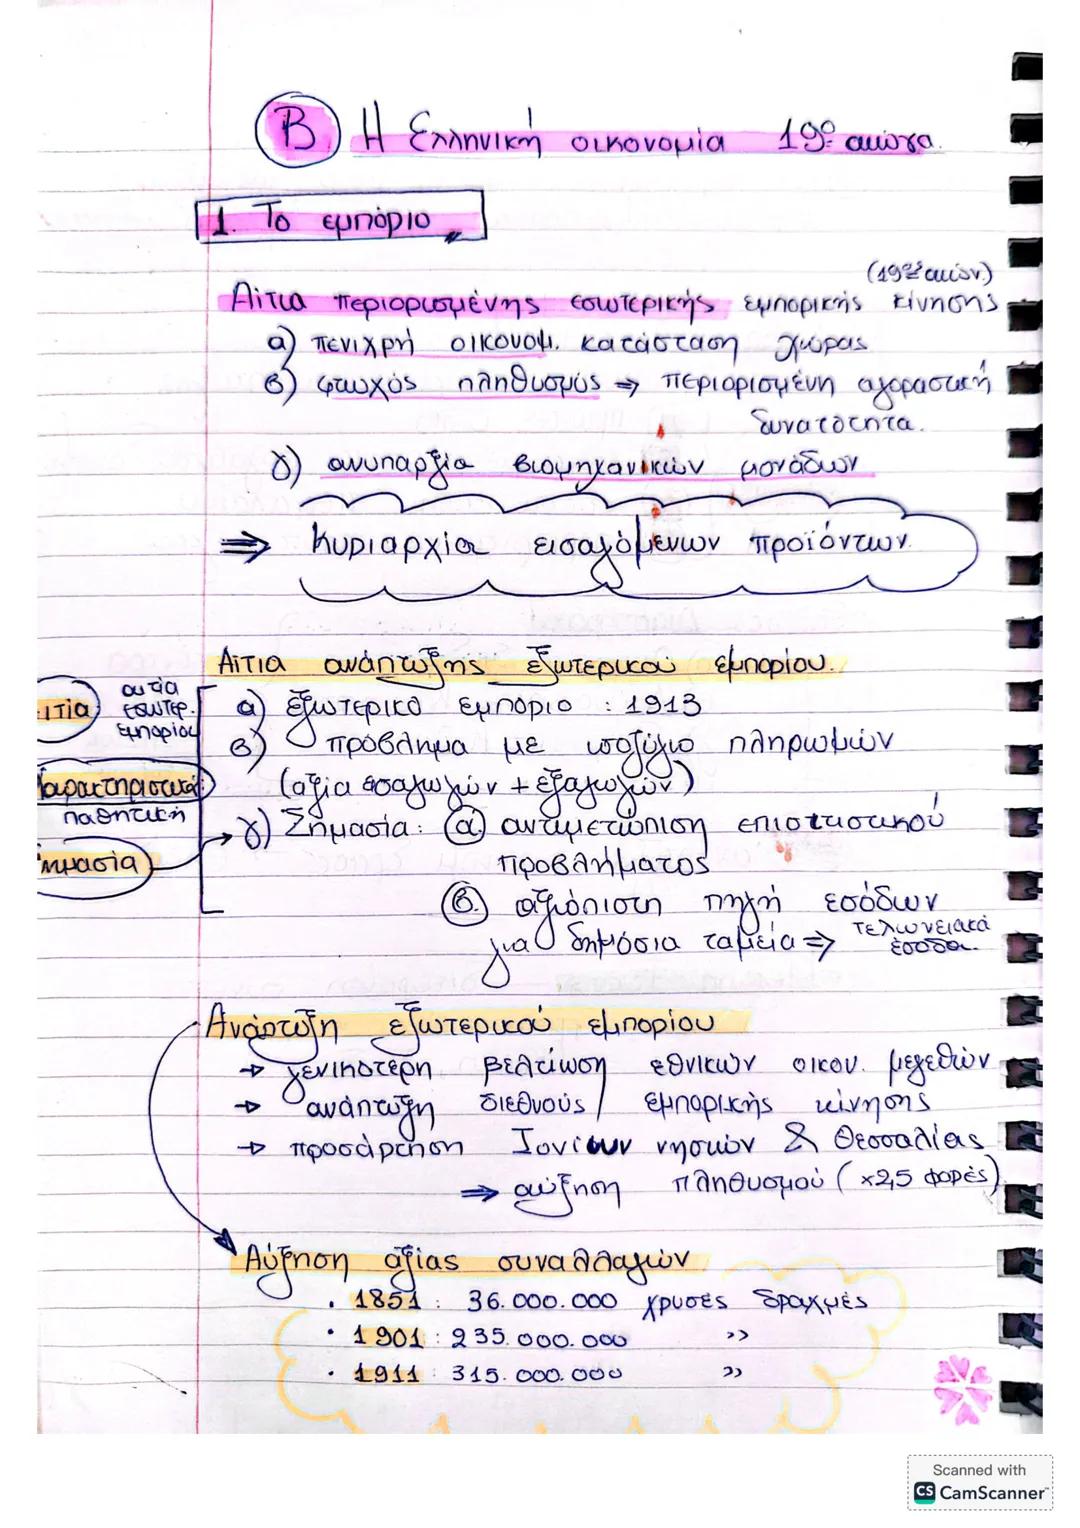 Β Η Ελληνική οικονομία 19ο αιώνα.
1. Το εμπόριο
(19ος αιών.)
Αίτια περιορισμένης εσωτερικής εμπορικής κίνησης
α) πενιχρή οικονομ. κατάσταση χώρας
β) φτωχός πληθυσμός ⇒ περιορισμένη αγοραστική
δυνατότητα.
γ) ανυπαρξία βιομηχανικών μονάδων
⇒ Κυριαρχία εισαγόμενων προϊόντων.
Αίτια ανάπτυξης εξωτερικού εμπορίου.
ιτία
αιτία
εσωτερ.
εμπορίου
α) εξωτερικό εμπόριο : 1913
β) πρόβλημα με ισοζύγιο πληρωμών
(αξία εισαγωγών + εξαγωγών)
αρακτηριστικά:
παθητική
γ) Σημασία: α) αντιμετώπιση επισιτιστικού
προβλήματος
ημασία
β. αξιόπιστη πηγή εσόδων
για δημόσια ταμεία ⇒ τελωνειακά
έσοδα.
Ανάπτυξη εξωτερικού εμπορίου
→ γενικότερη βελτίωση εθνικών οικον. μεγεθών
→ ανάπτυξη διεθνούς εμπορικής κίνησης
→ προσάρτηση Ιονίων νησιών & Θεσσαλίας
⇒ αύξηση πληθυσμού (x2,5 φορές)
Αύξηση αξίας συναλλαγών
· 1851 : 36.000.000 χρυσές δραχμές
· 1901 : 235.000.000 >>
· 1911 : 315.000.000 >>
Scanned with
CS CamScanner